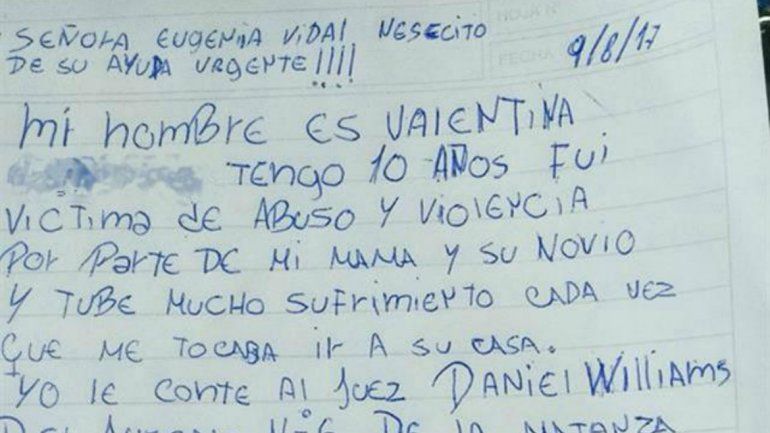 HOJA N
FECHA
SEÑORA EUGENIA VIDAL NESECITO
9/8/17
DE SU AYUDA URGENTE!!!!
Mi NOMBRE ES VALENTINA
TENGO 10 AÑOS FUI
VICTIMA de ABUSO Y VIOLENCIA
POR PARTE DE MI MAMA Y SU NOVIO
Y TUBE MUCHO SUFRIMIENTO CADA VEZ
QUE ME TOCABA IR A SU CASA.
YO LE CONTE AL JUEZ DANIEL WILLIAMS
DEL N-6 DE LA MATANZA